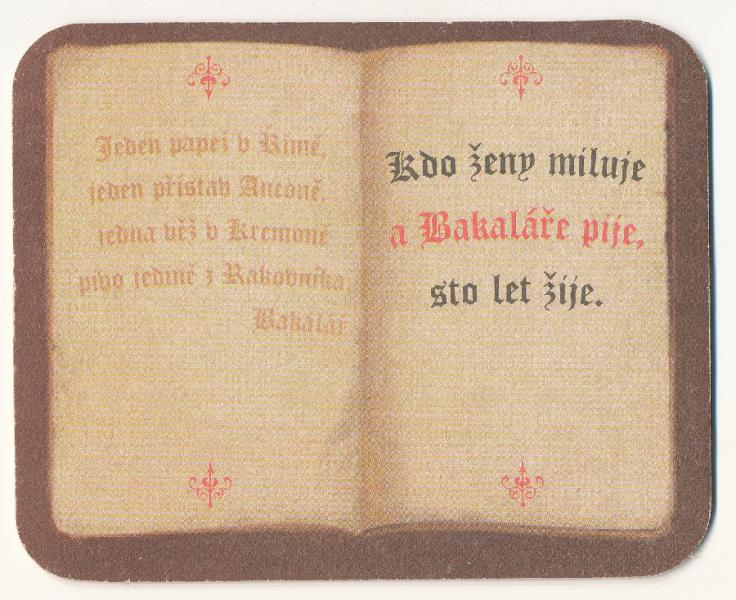 Jeden papež v Římě,
jeden přístav Anconě,
jedna věž v Kremoně
pivo jedině z Rakovníka,
Bakalář
Kdo ženy miluje
a Bakaláře pije,
sto let žije.